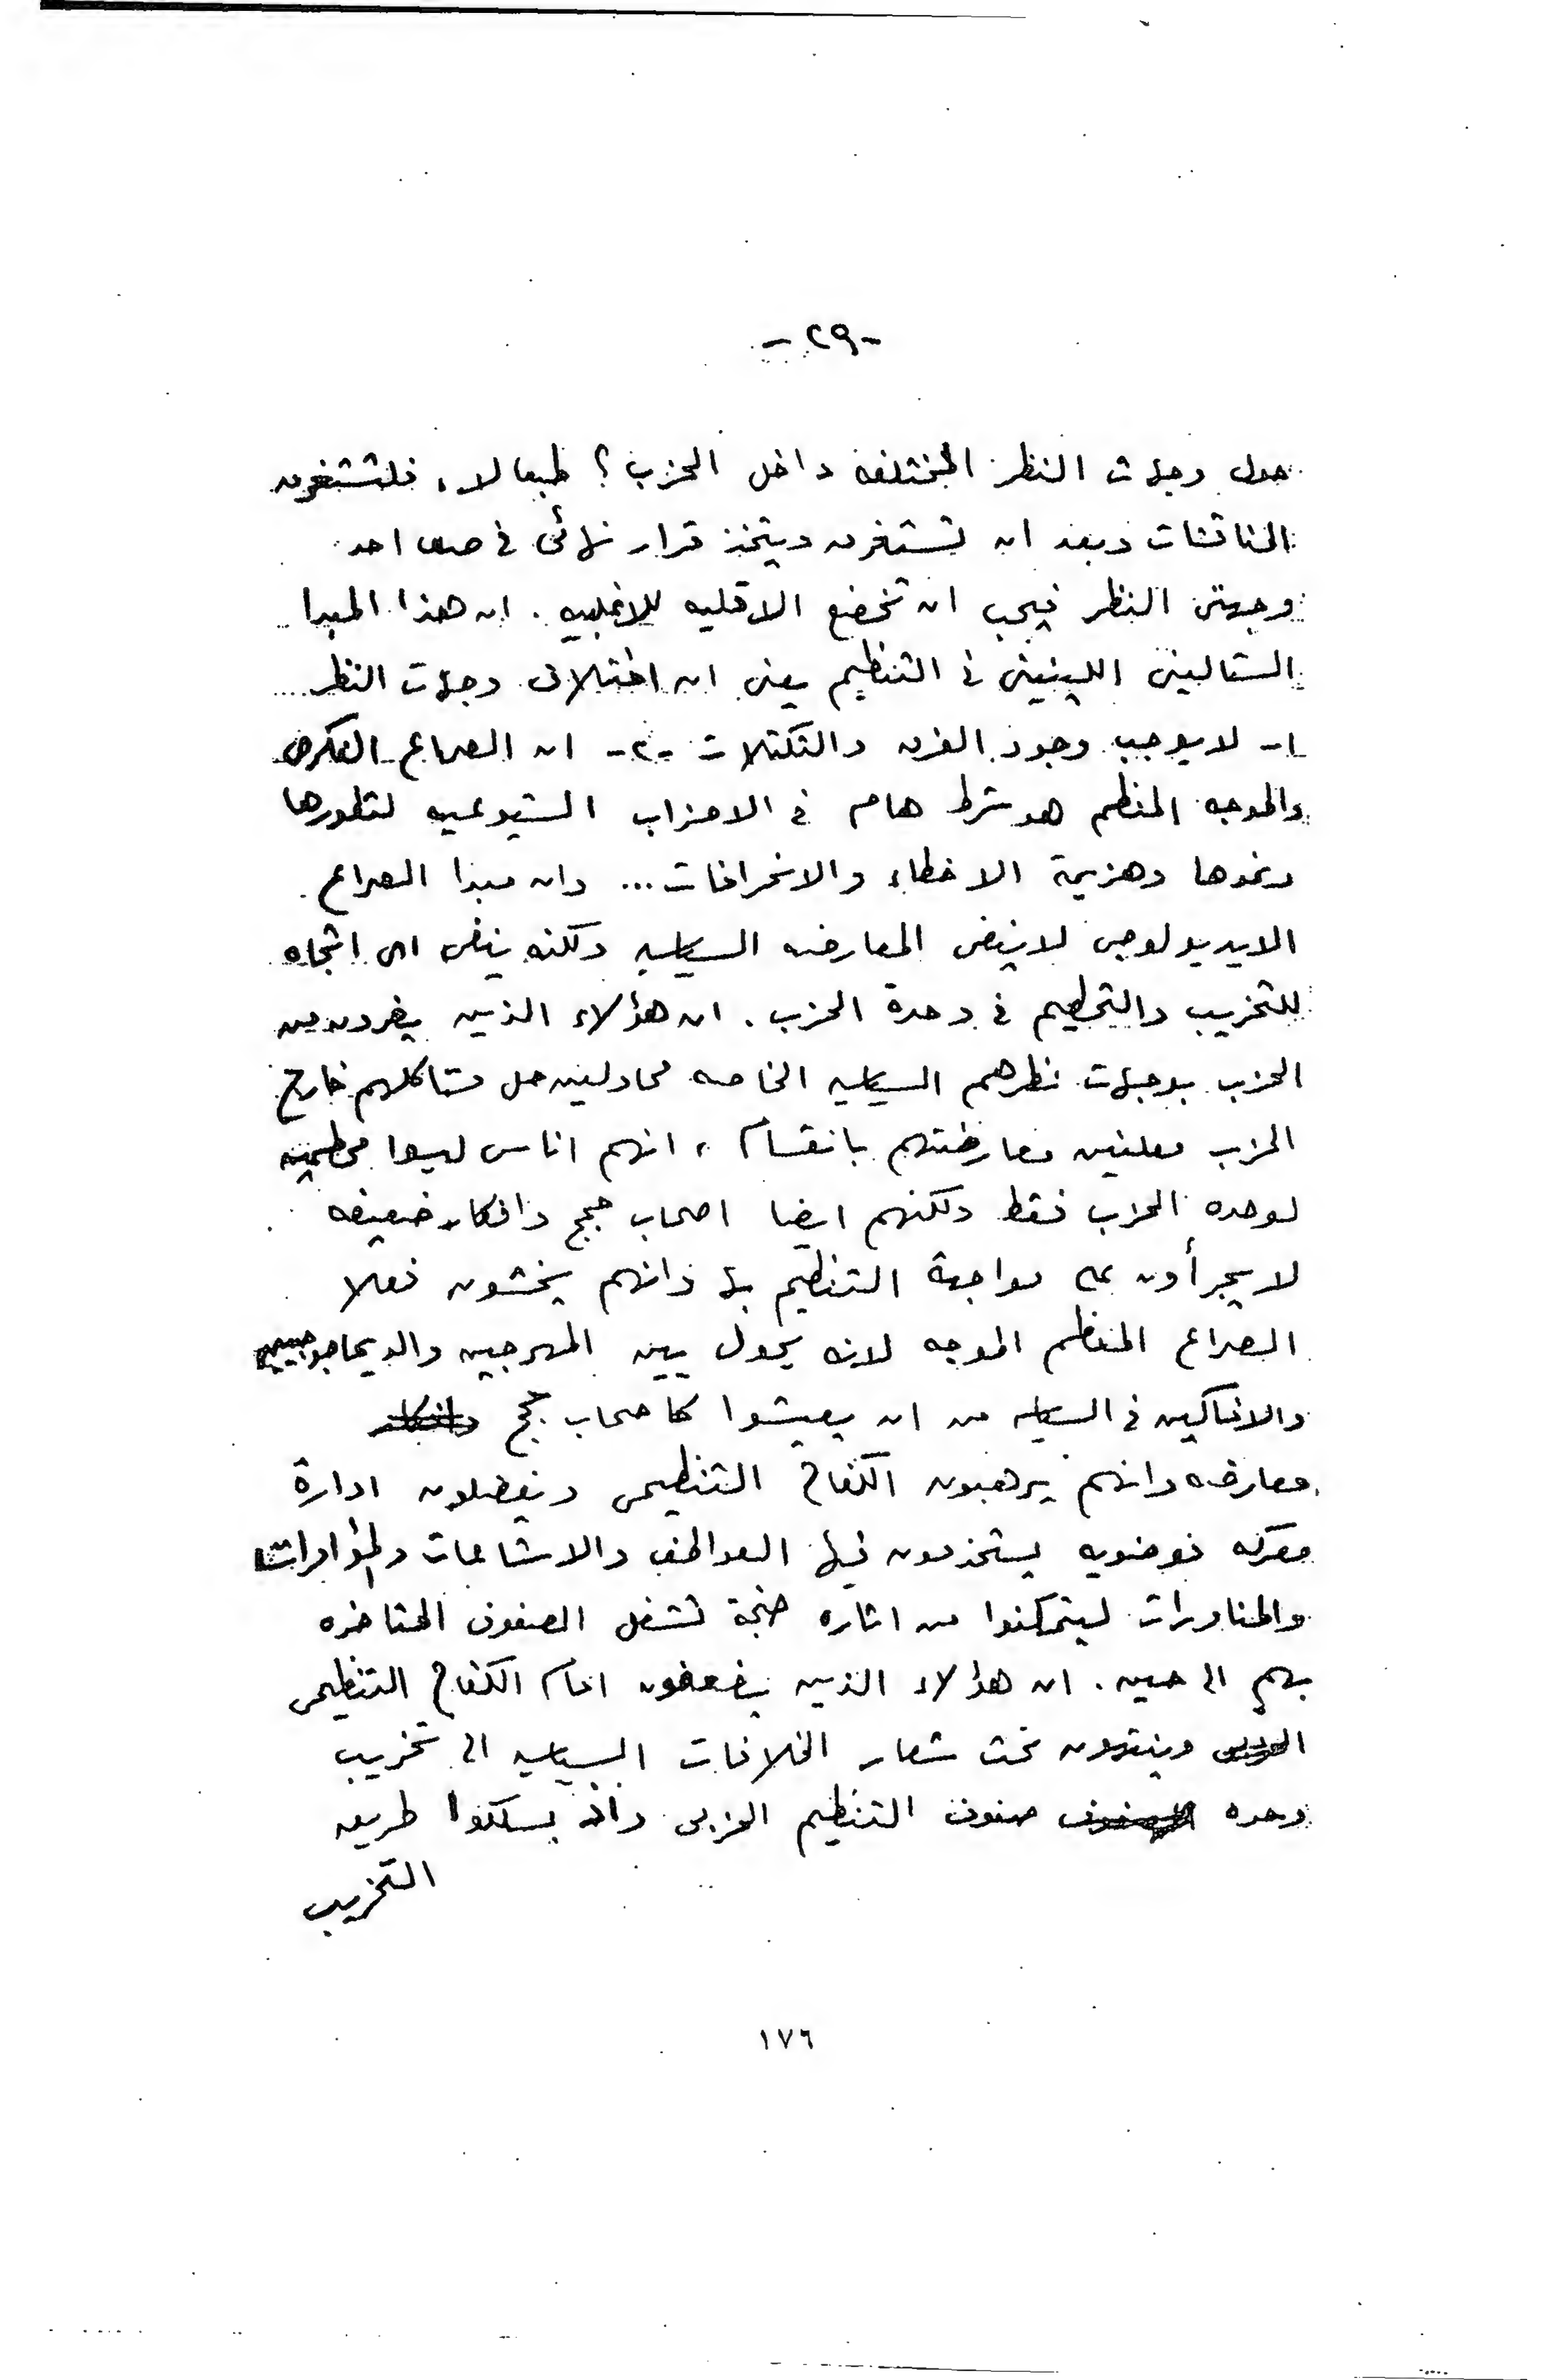 -٢٩-
حول وجهات النظر المختلفه داخل الحزب ؟ طبعا لا ، فلتستغرق
المناقشات وبعد ان تستغرق ويتخذ قرار نهائى فى صالح احد
وجهتى النظر فيجب ان تخضع الاقليه للاغلبيه . ان هذا المبدا
الستالينى اللينينى فى التنظيم يعنى ان اختلاف وجهات النظر ...
١- لا يوجب وجود الفرق والتكتلات -٢- ان الصراع الفكرى
والموجه المنظم هو شرط هام فى الاحزاب الشيوعيه لتطورها
ونموها وهزيمة الاخطاء والانحرافات ... وان مبدا الصراع .
الايديولوجى لا ينفى المعارضه السياسيه ولكنه ينفى اى اتجاه
للتخريب والتحطيم فى وحدة الحزب . ان هؤلاء الذين يفرون من
الحزب بوجهات نظرهم السياسيه الخاصه محاولين حل مشاكلهم خارج
الحزب معلنين معارضتهم بانقسام ، انهم اناس ليسوا محطمين
لوحده الحزب فقط ولكنهم ايضا اصحاب حجج وافكار ضعيفه
لا يجرأون على مواجهة التنظيم بها وانهم يخشون فعلا
الصراع المنظم الموجه لانه يحول بين المهرجين والديماجوجيين
والافاكين فى السياسه من ان يعيشوا كاصحاب حجج وافكار
معارضه وانهم يرهبون الكفاح التنظيمى ويفضلون ادارة
معركه فوضويه يستخدمون فيها العواطف والاشاعات والمؤامرات
والمناورات ليتمكنوا من اثاره ضجة تشغل الصفوف المتاخره
بهم الى حين . ان هؤلاء الذين يضعفون امام الكفاح التنظيمى
تحت شعار الخلافات السياسيه الى تخريب
وحده صفوف التنظيم الحزبى يسلكوا طريق
التخريب
١٧٦